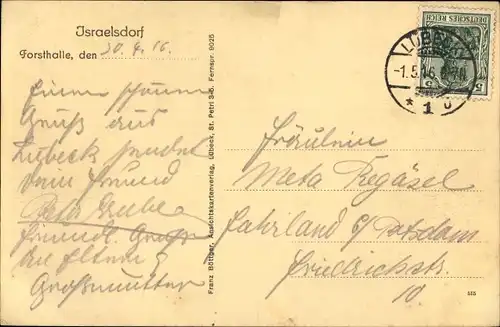 Israelsdorf
Forsthalle, den 30.4.16.
Einen schönen
Gruß aus
Lübeck sendet
dein Freund
freundl. Gruß
an Eltern &
Großmutter
Franz Böttger, Ansichtskartenverlag, Lübeck, St. Petri 3-5. Fernspr. 8925
DEUTSCHES REICH
5 5
LÜBECK
-1.5.16. 6-7N
* 1
Fräulein
Meta Regäsel
Fahrland b/ Potsdam
Friedrichstr.
10